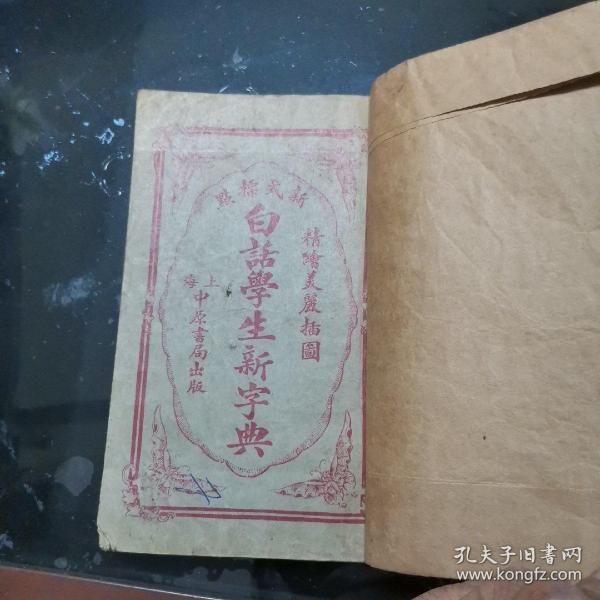 新式標點
精繪美麗插圖
白話學生新字典
上海
中原書局出版
孔夫子旧书网
www.kongfz.com